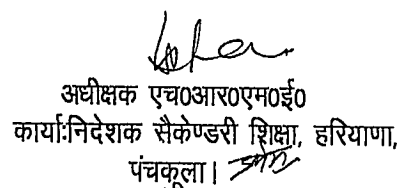 अधीक्षक एच0आर0एम0ई0
कार्या:निदेशक सैकेण्डरी शिक्षा, हरियाणा,
पंचकूला।